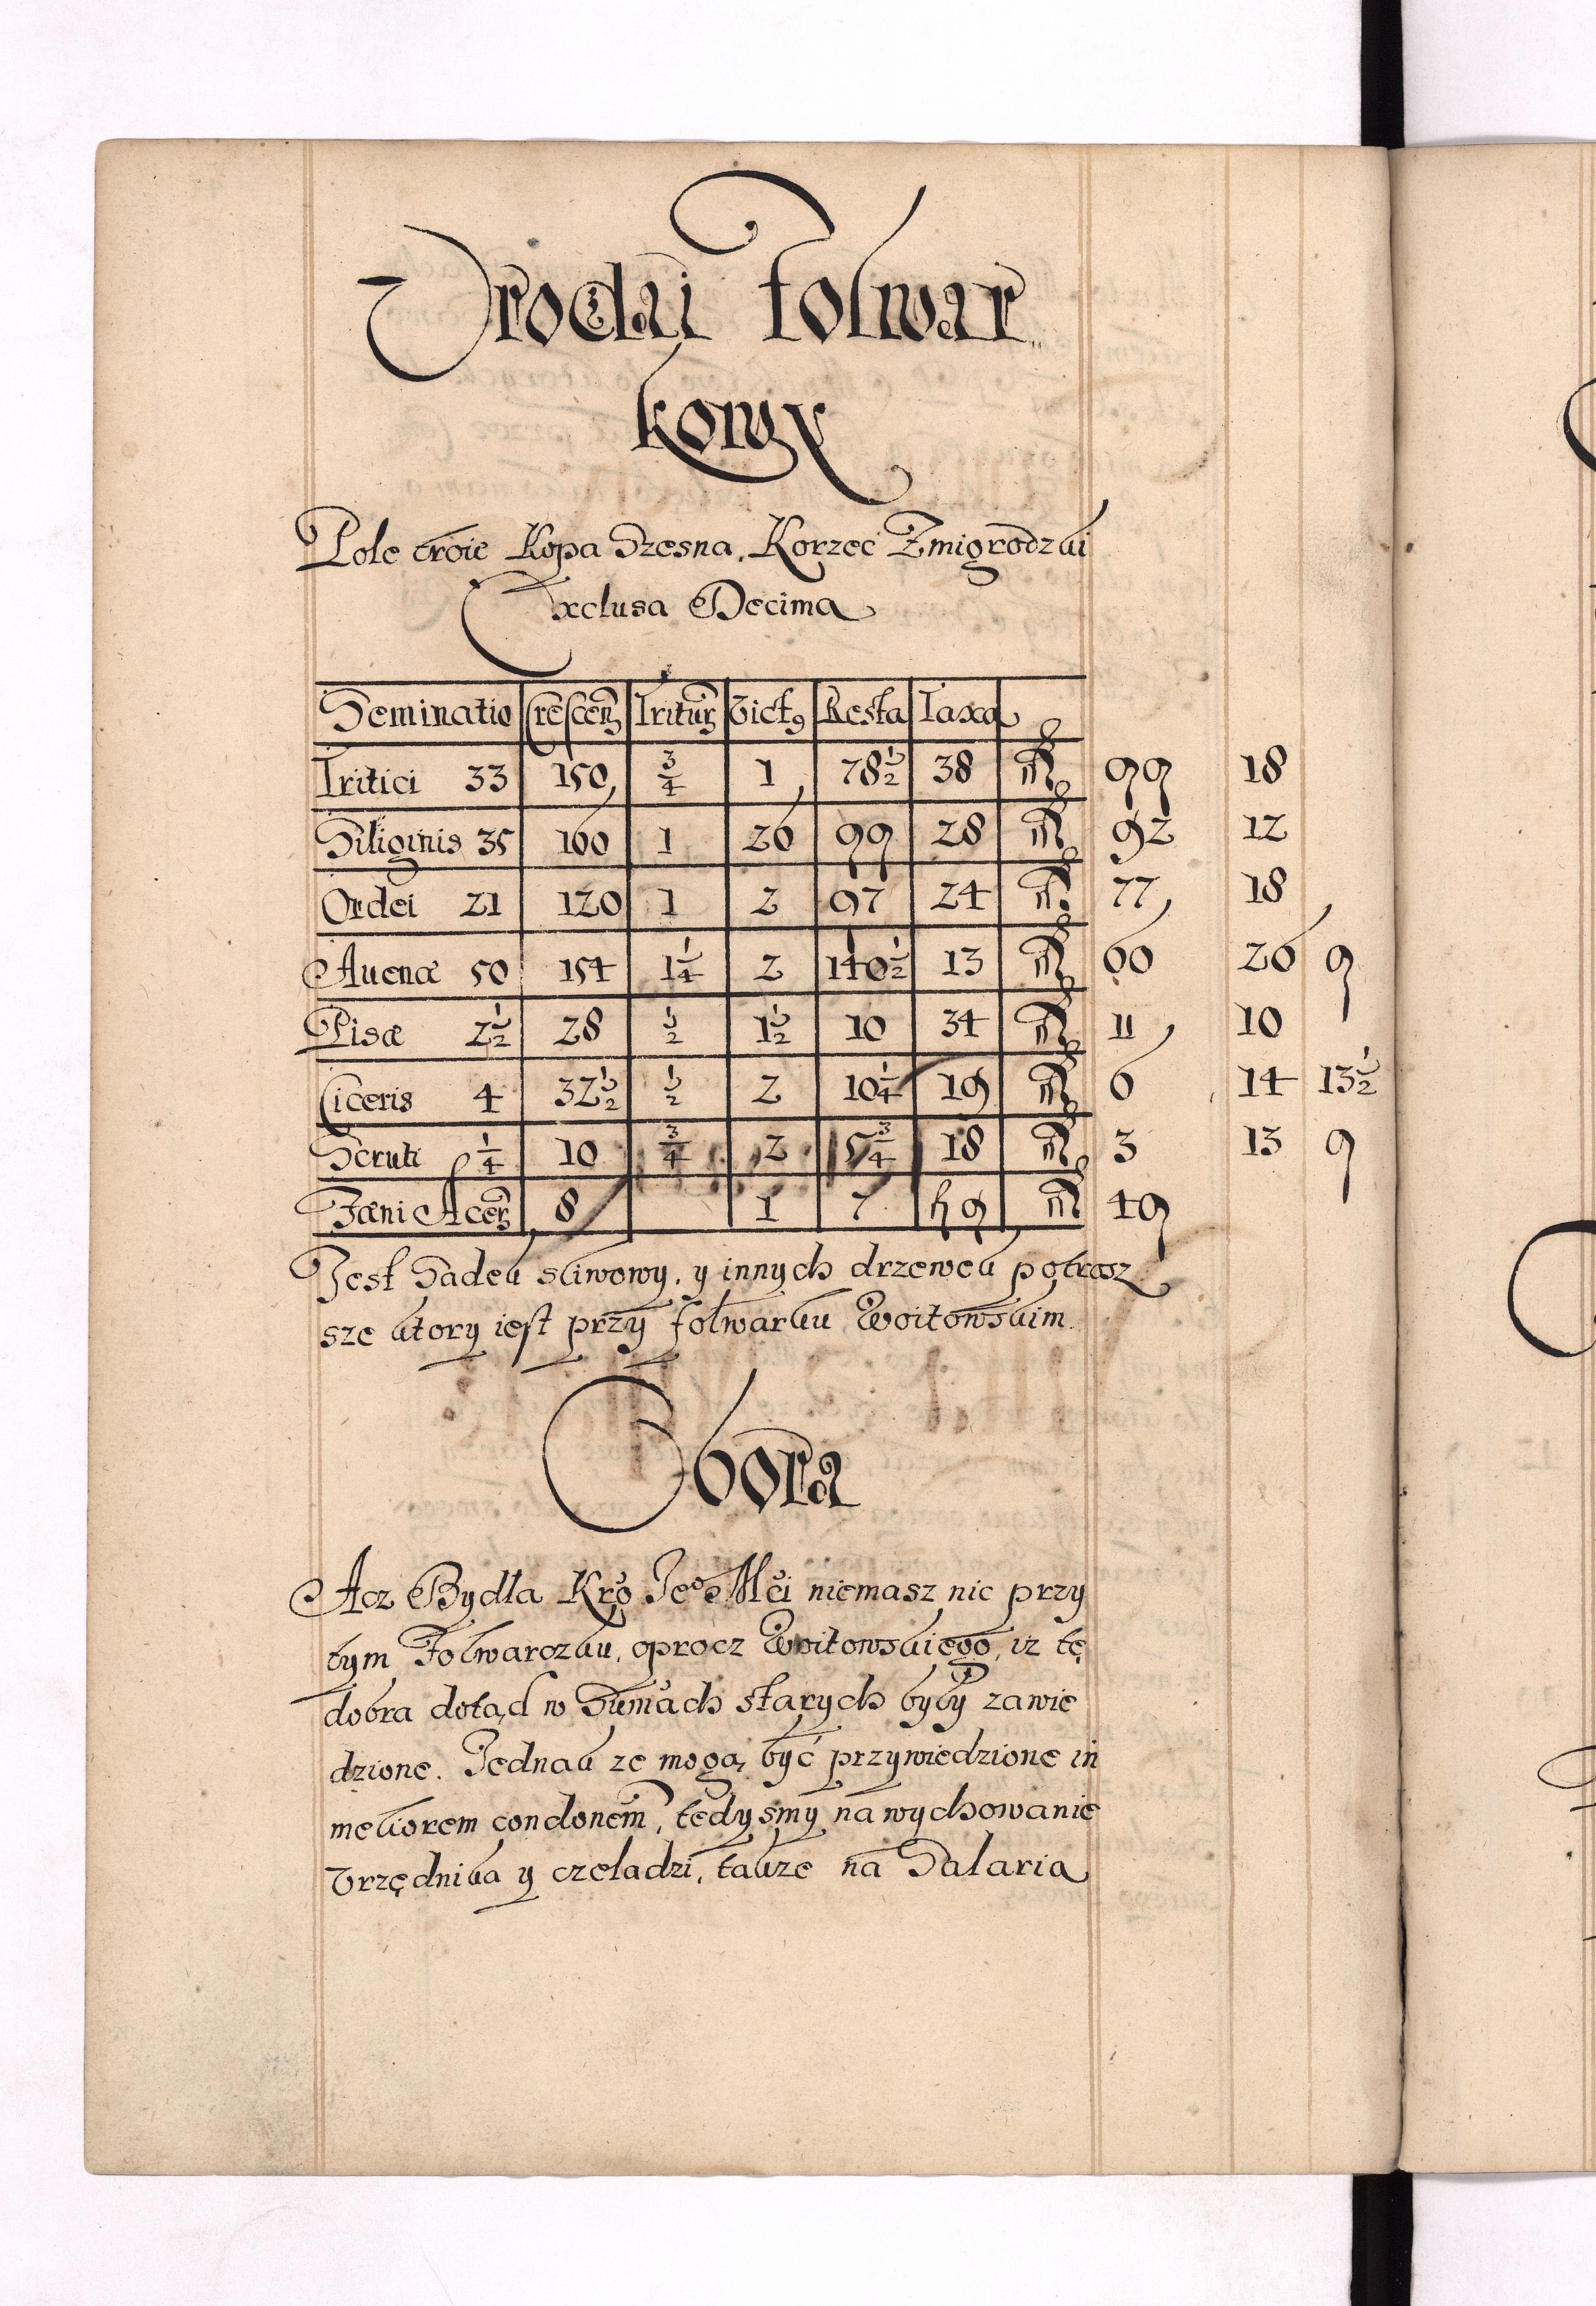 Urodzai Folwar
kowy
Pole troie Kopa Szesna. Korzec Zmigrodzki
Exclusa Decima
Seminatio Crescen Tritur Vict9 Resta Taxa
Tritici 33 150 3/4 1 78 1/2 38 m 99 18
Siliginis 35 160 1 26 99 28 m 92 12
Ordei 21 120 1 2 97 24 m 77 18
Auenæ 50 154 1 1/4 2 140 1/2 13 m 60 26 9
Pisæ 2 1/2 28 1/2 1 1/2 10 34 m 11 10
Ciceris 4 32 1/2 1/2 2 10 1/4 19 m 6 14 13 1/2
Scruti 1/4 10 3/4 2 5 3/4 18 m 3 13 9
Fæni Acer 8 1 7 m 49
Jest Sadek sliwowy. y innych drzewek potrosz
sze ktory iest przy folwarku Woitowskim.
Obora
Acz Bydła Kro Je° Mci niemasz nic przy
tym Folwarczku, oprocz Woitowskiego, iz tę
dobra dotąd w Sumach starych były zawie
dzione. Jednak ze mogą być przywiedzione in
meliorem condonem, tedysmy na wychowanie
Vrzędnika y czeladzi, takze na Salaria